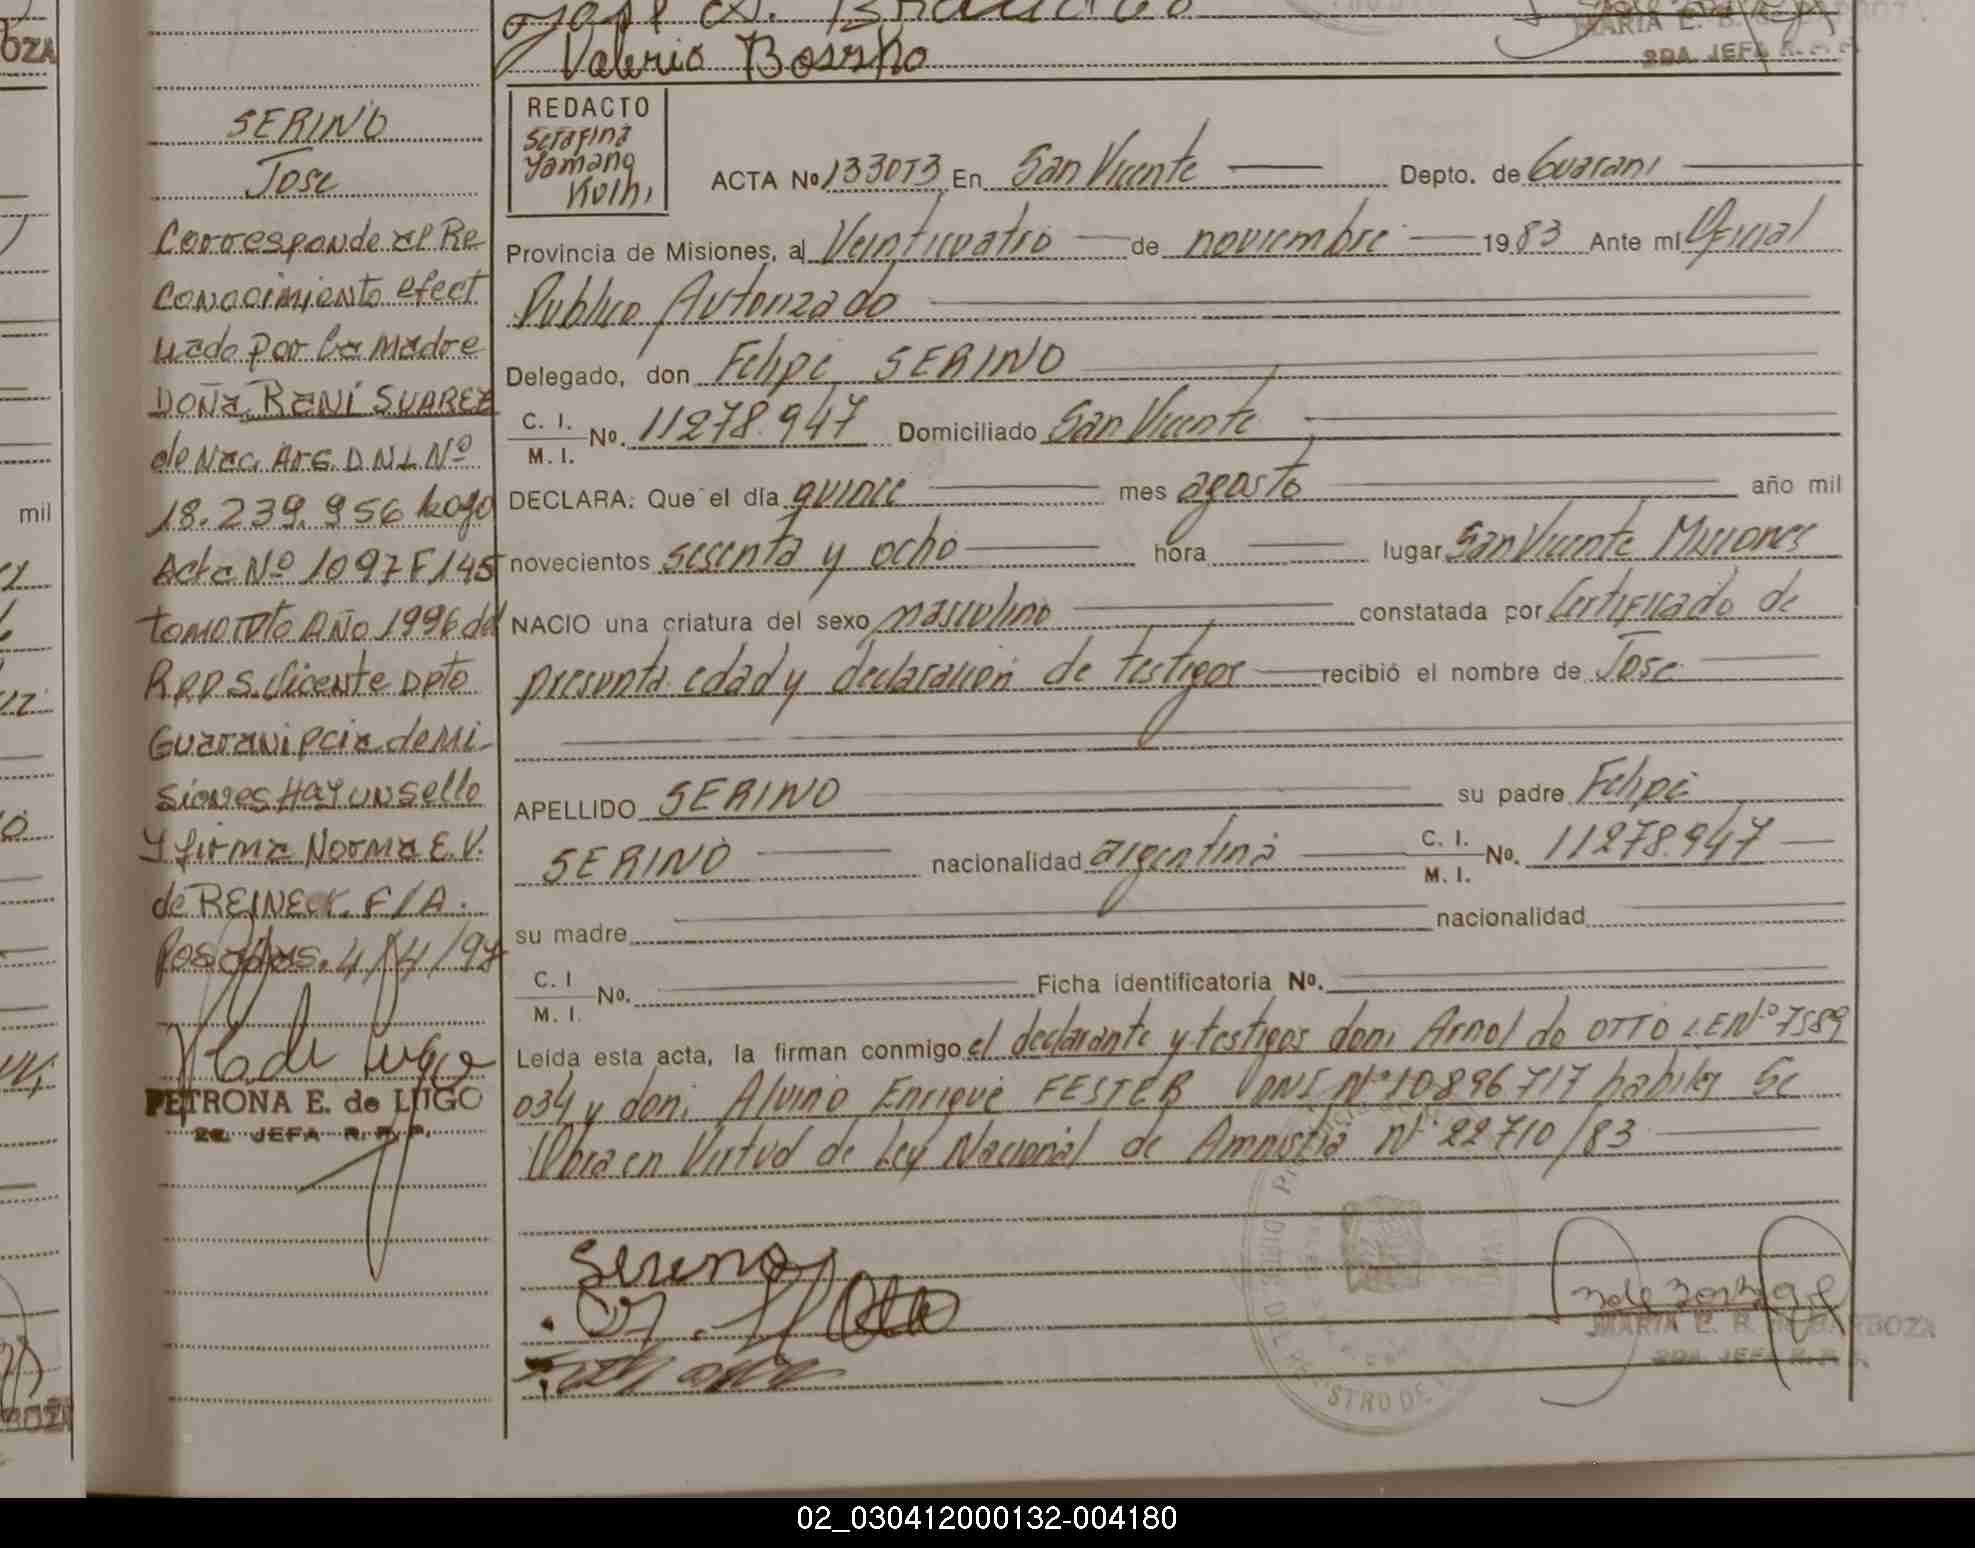 Valerio
OZA
SERINO
Jose
Corresponde al Re
conocimiento efect
uado por la madre
DOÑA RENÍ SUAREZ
de Nac. Arg. D.N.I. Nº
18.239.956 bajo
Acta Nº 1097 F 145
tomo año 1996 del
R.P.P. S. Vicente Dpto
Guarani pcia de Mi-
siones Hay un sello
y firma Norma E.V.
de REINECK. F/A.
Posadas. 4/4/97
PETRONA E. de LUGO
2a. JEFA R. P. P.
mil
MARIA E. B. de BARBOZA
2DA. JEFA R. P. P.
REDACTO
Serafina
Yamana
Kuihi
ACTA Nº 133 OT3 En San Vicente Depto. de Guarani
Provincia de Misiones, al Veinticuatro de noviembre 1983 Ante mi Oficial
Publico Autorizado
Delegado, don Felipe SERINO
C. I.
M. I. No. 11278.947 Domiciliado San Vicente
DECLARA: Que el día quince mes agosto año mil
novecientos sesenta y ocho hora lugar San Vicente Misiones
NACIO una criatura del sexo masculino constatada por Certificado de
presunta edad y declaración de testigos recibió el nombre de Jose
APELLIDO SERINO su padre Felipe
SERINO nacionalidad argentina C. I.
M. I. No. 11278.947
su madre nacionalidad
C. I
M. I. No. Ficha identificatoria No.
Leída esta acta, la firman conmigo el declarante y testigos don: Arnoldo OTTO L.E Nº 7589
034 y don: Alvino Enrique FESTER DNI Nº 10896717 habiles Se
labra en Virtud de Ley Nacional de Amnistia nº 22710/83
Sereno
MARIA E. B. de BARBOZA
2DA. JEFA R. P. P.
02_030412000132-004180